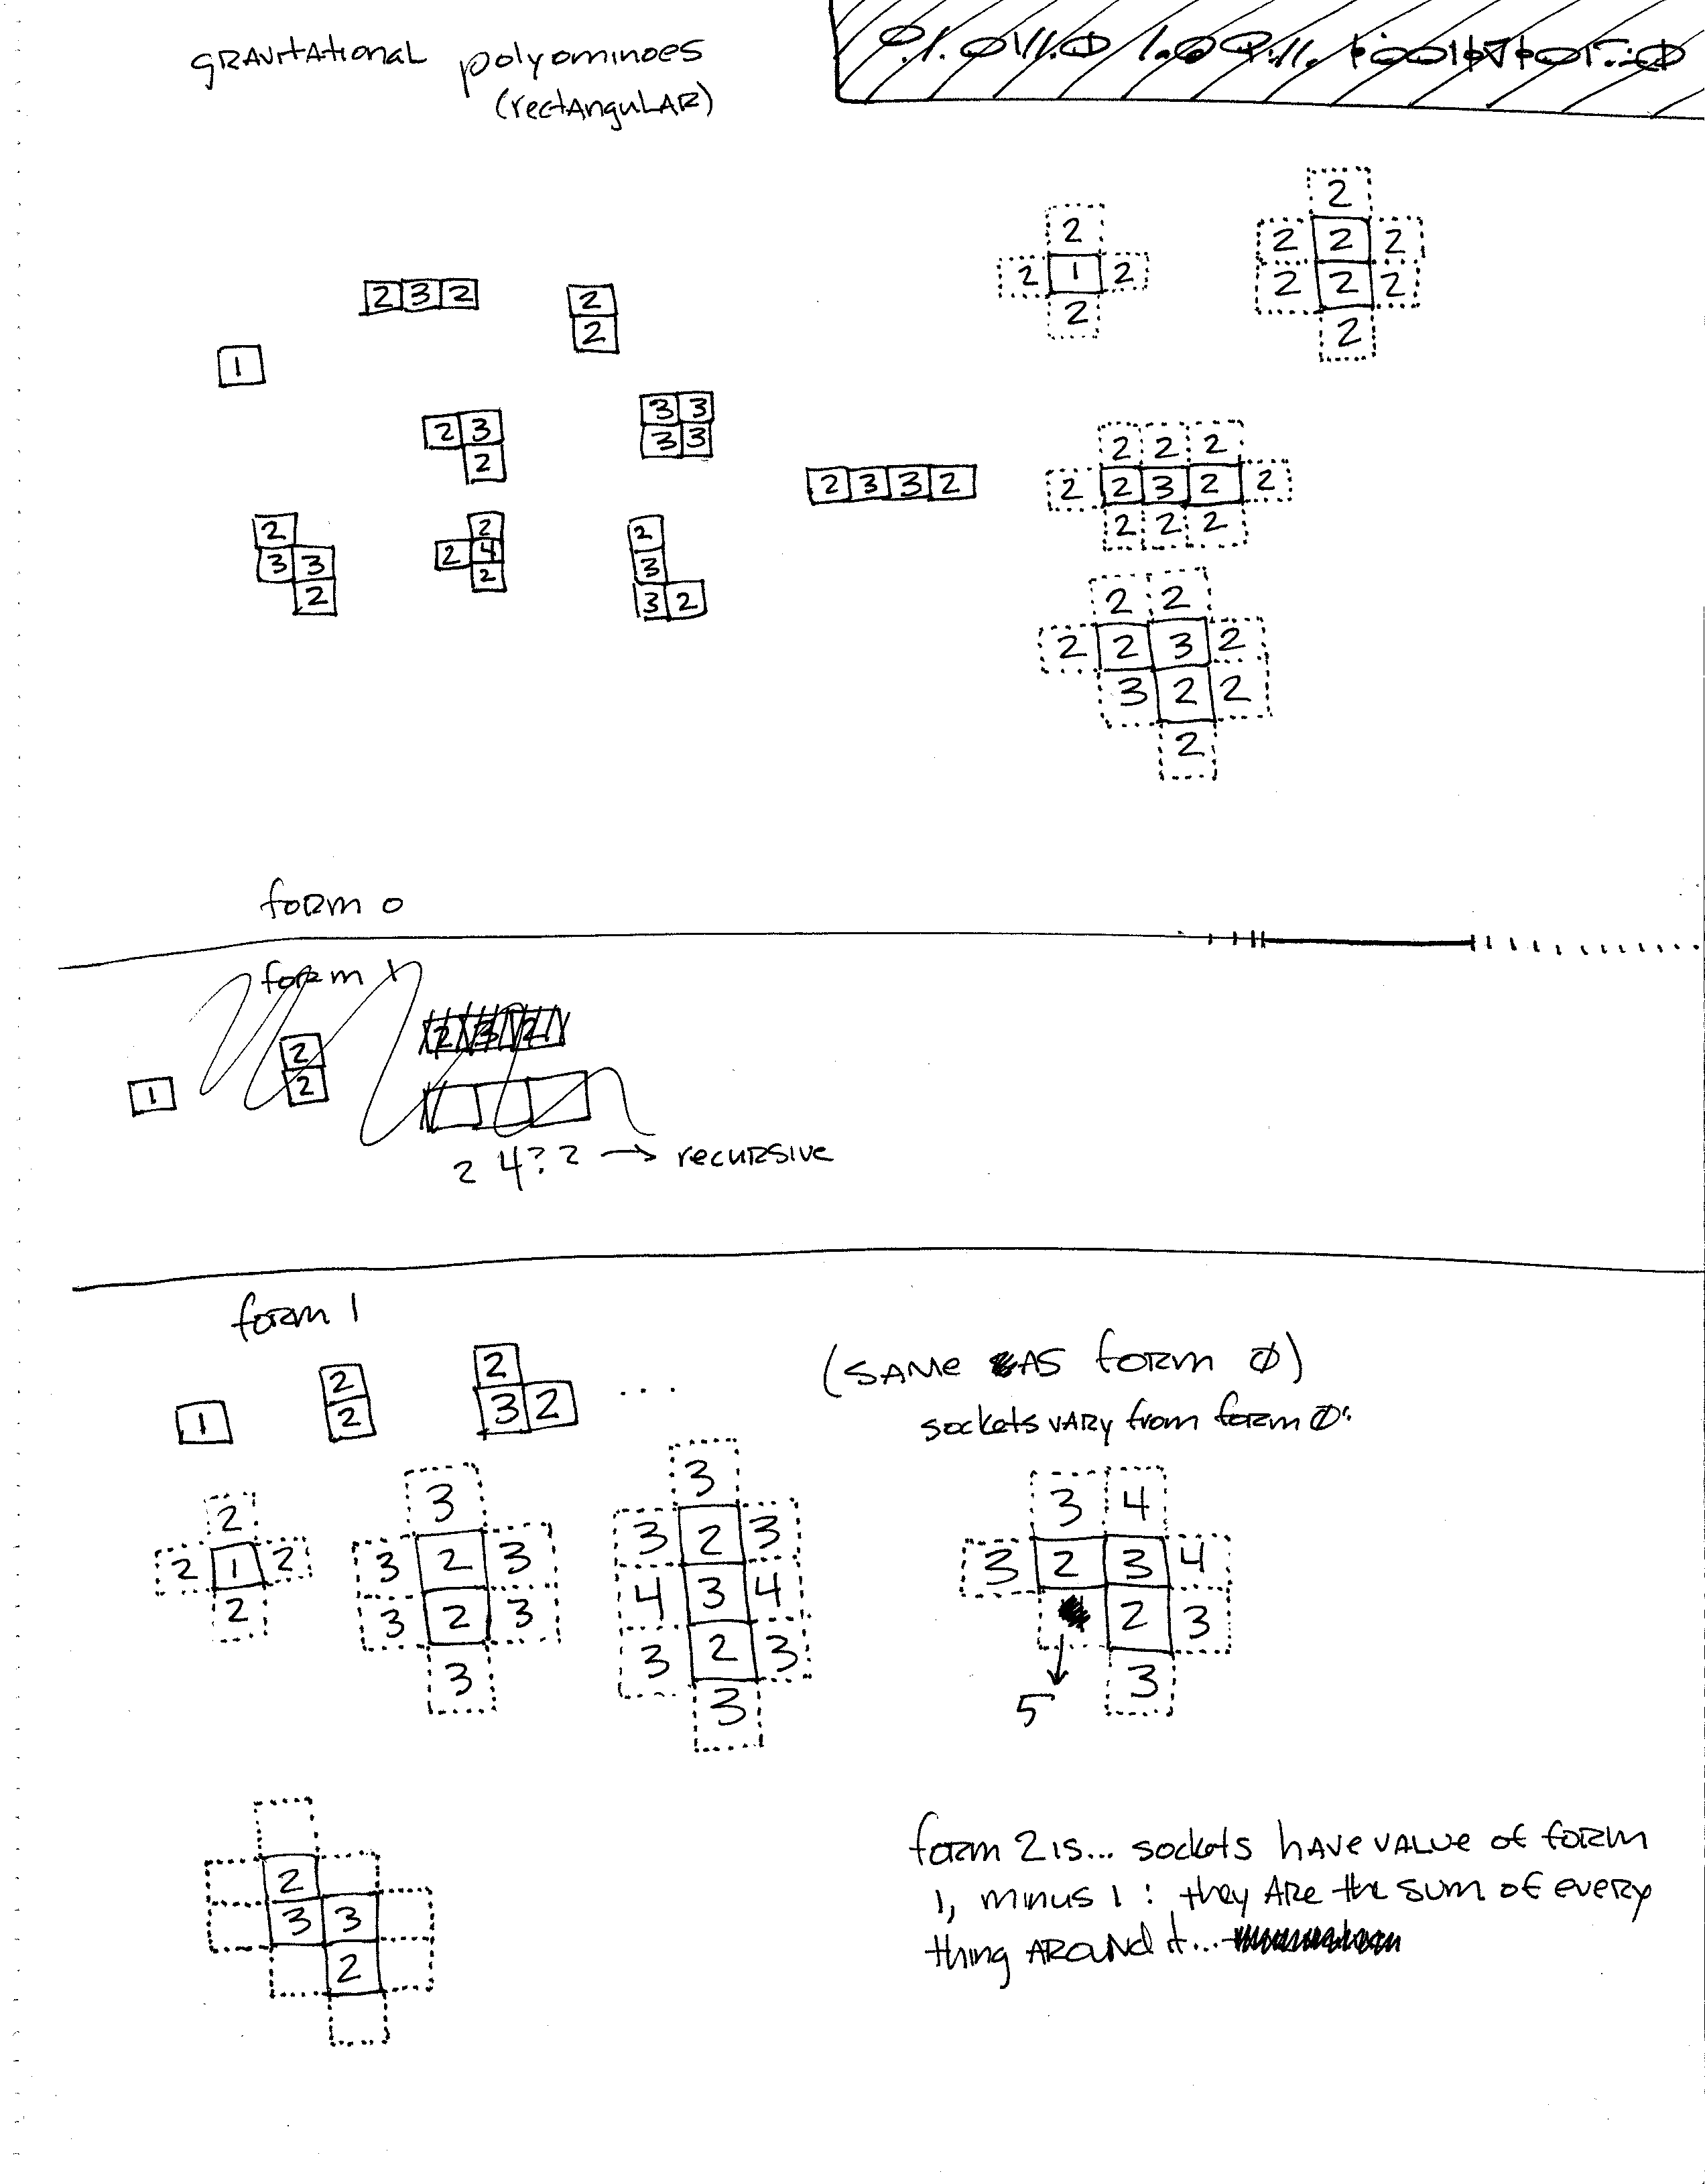 gravitational polyominoes
(rectangular)
2
2
2 2 2
2 3 2
2
2 1 2
2 2 2
2
2
2
1
2 3
3 3
2 2 2
2
3 3
2 3 3 2
2 2 3 2 2
2
2
2
2 2 2
3 3
2 4
3
2 2
2
2
3 2
2 2 3 2
3 2 2
2
form 0
form 1
2 3 2
2
1
2
2 4? 2 → recursive
form 1
2
2
(same as form Ø)
1
2
3 2
...
sockets vary from form Ø:
3
3
3 4
2
3 2 3
2 1 2
3 2 3
3 2 3 4
4 3 4
2
3 2 3
2 3
3 2 3
3
3
5
3
form 2 is... sockets have value of form
2
1, minus 1 : they are the sum of every
3 3
thing around it...
2